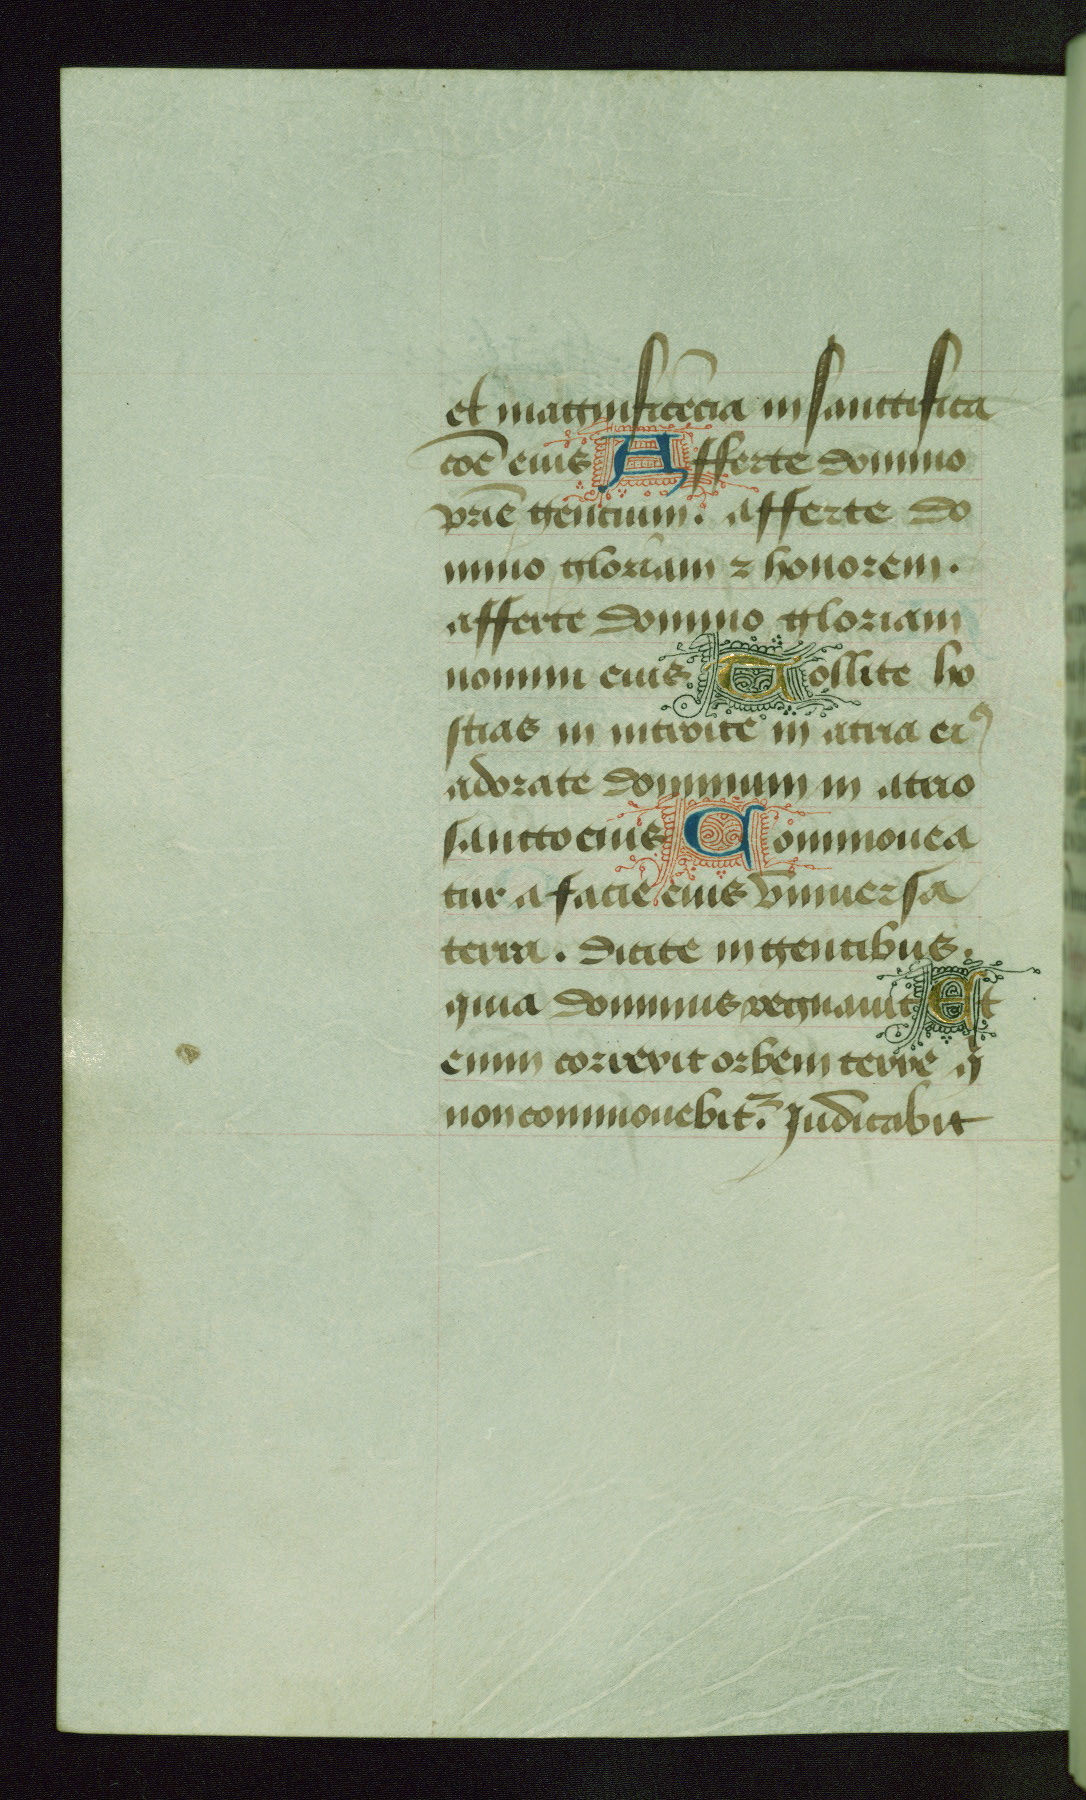 et magnificēcia in sanctifica
coē eius Afferte domino
prie gencium. afferte do
mino gloriam ⁊ honorem.
afferte domino gloriam
nomini eius Tollite ho
stias in introite in atria eiꝰ
adorate dominum in atrio
sancto eius Commouea
tur a facie eius vniuersa
terra. dicite in gentibus.
quia dominus regnauit Et
enim correxit orbem terre q̄
non commouebit᷑. Iudicabit